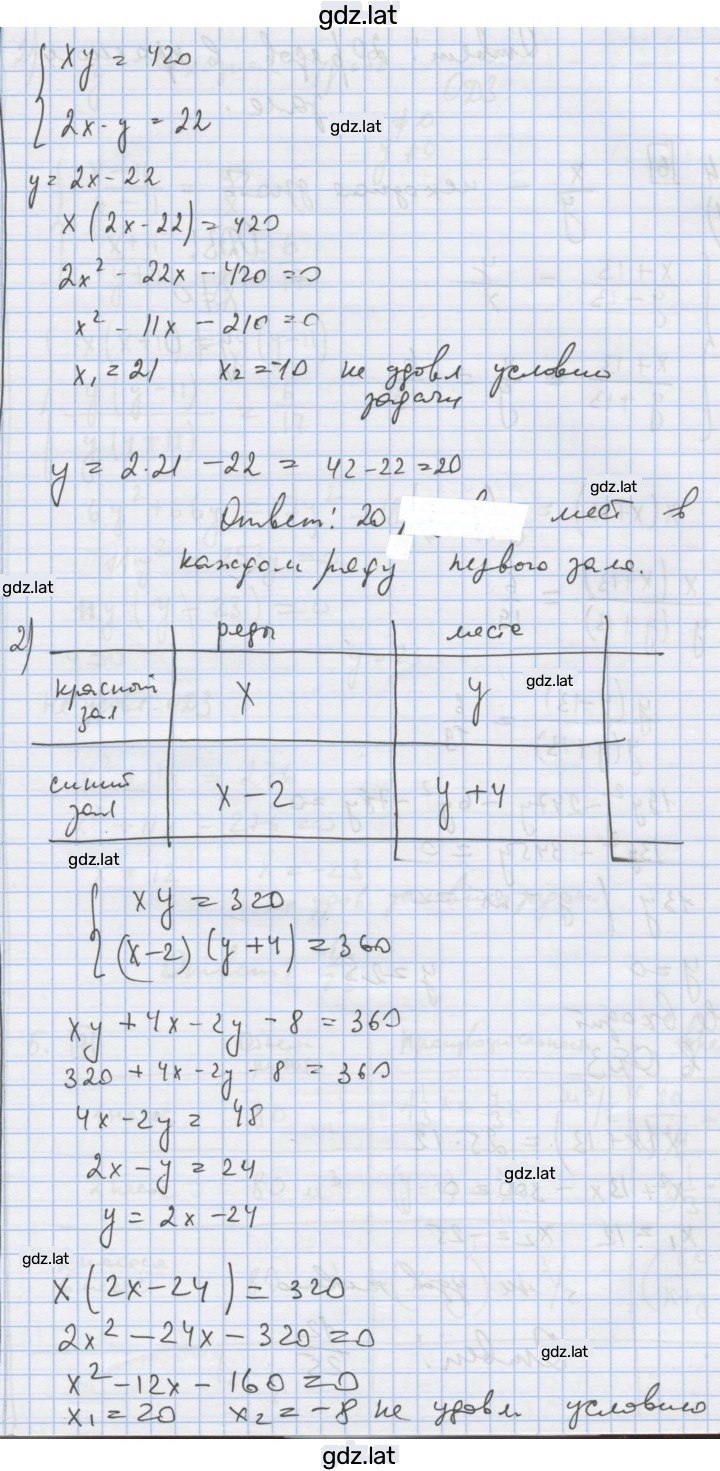 gdz.lat
xy = 420
2x - y = 22
gdz.lat
y = 2x - 22
x(2x - 22) = 420
2x² - 22x - 420 = 0
x² - 11x - 210 = 0
x₁ = 21 x₂ = -10 не удовл условию
задачи
y = 2·21 - 22 = 42 - 22 = 20
gdz.lat
Ответ: 20, мест в
каждом ряду первого зала.
gdz.lat
2) ряды места
красный зал x y
gdz.lat
синий зал x - 2 y + 4
gdz.lat
xy = 320
(x - 2)(y + 4) = 360
xy + 4x - 2y - 8 = 360
320 + 4x - 2y - 8 = 360
4x - 2y = 48
2x - y = 24
gdz.lat
y = 2x - 24
gdz.lat
x(2x - 24) = 320
2x² - 24x - 320 = 0
gdz.lat
x² - 12x - 160 = 0
x₁ = 20 x₂ = -8 не удовл условию
gdz.lat